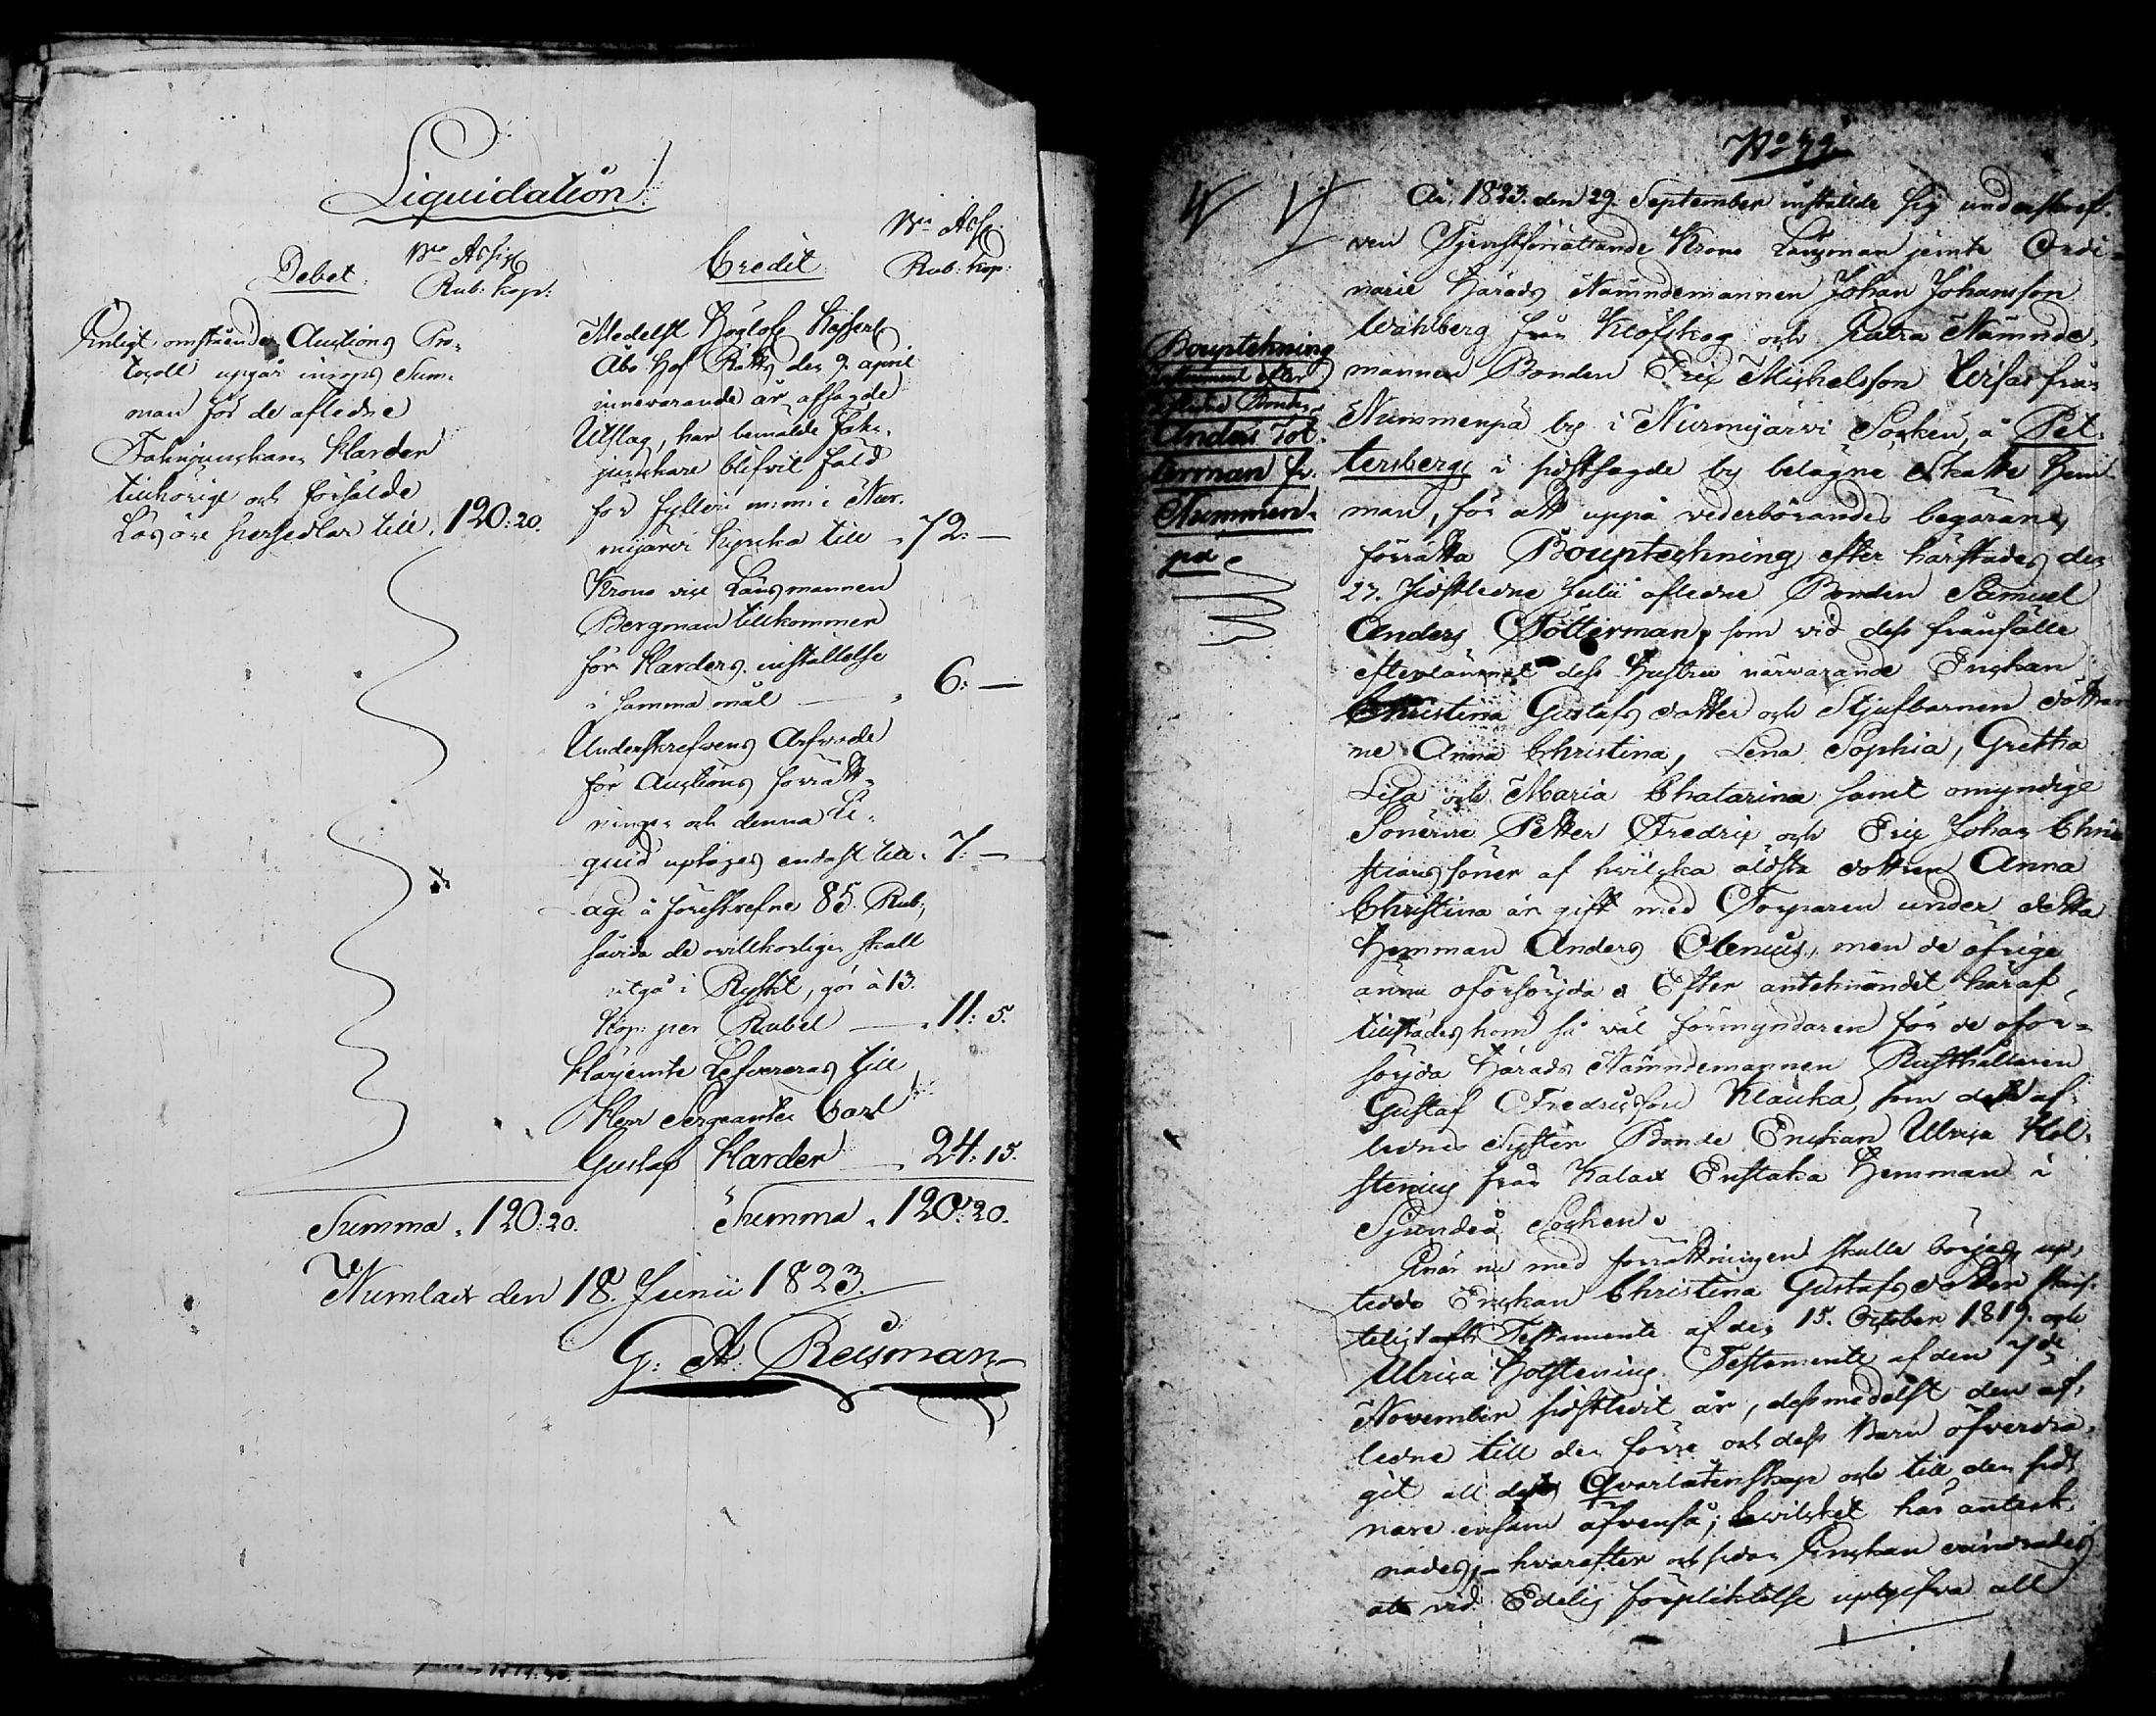 Liquidation
Debet. Bco Assigt
Rub: kop:
Enligt omstående Auctions Pro-
tocoll upgår inrops Sum-
man för de afledne
Fahnjunkaren Harder
tillhörige och försålde
Lösöre persedlar till 120: 20.
Summa 120: 20.
Credit Bco Ass
Rub: kop:
Medelst Höglofl Kejserl
Åbo Hof Rätts den 9. april
innevarande år afsagde
Utslag, har bemälde Fahn-
junkare blifvit fäld
för fylleri m: m: i Nur-
mijärvi kyrcka till 72: —
Krono vice Länsmannen
Bergman tillkommer
för Harders inställelse
i samma mål — 6: —
Underskrefvens Arfvode
för Auctions förrätt-
ningen och denna Li-
quid uptages endast till 7: —
agi å föreskrefne 85 Rub:
såvida de ovillkorligen skall
utgå i Ryskt, gör à 13.
kop: per Rubel — 11: 5.
Härjemte Lefvereras till
Herr Sergeanten Carl
Gustaf Harder — 24: 15.
Summa 120: 20.
Numlax den 18. Junii 1823.
G: A: Reisman
No 39
År 1823. den 29. September instälde sig underskref-
ven Tjenstförrättande Krono Länsman jemte Ordi-
narie Härads Nämndemannen Johan Johansson
Wahlberg från Klöfskog och Extra Nämnde-
mannen Bonden Eric Michelsson från
Nummenpä by i Nurmijärvi Socken, å Pet-
tersberg i sistsagde by belägne Skatte Hem-
man, för att uppå vederbörandes begäran,
förrätta Boupteckning efter härstädes den
27. sistledne Julii aflednе Bonden Samuel
Anders Tötterman, som vid dess frånfälle
efterlämnat dess Hustru närvarande Enckan
Christina Gustafsdotter och Stjufbarnen döttrar-
ne Anna Christina, Lena Sophia, Gretha
Lisa och Maria Chatarina samt omyndige
Sönerne Petter Fredric och Eric Johan Chri-
stians söner af hvilcka äldsta dottren Anna
Christina är gift med Torparen under detta
Hemman Anders Olenius, men de öfrige
ännu oförsörjda. Efter antecknandet häraf,
tillstädes kom så väl förmyndaren för de oför-
sörjda Härads Nämndemannen Rusthållaren
Gustaf Fredricsson Klauka, som dess af-
lednes Syster Bonde Enckan Ulrica Hol-
stenius från Kalax Enstaka Hemman i
Sjundeå Socken.
Enär nu med förrättningen skulle börjas, up-
tedde Enckan Christina Gustafsdotter skrif-
teligt Testamente af den 15. October 1819. och
Ulrica Holstenius Testamente af den 7de
November sistledit år, dessmedelst den af-
ledne till den förre och dess Barn öfverdra-
git all dess Qvarlåtenskap och till den sid-
nare ensam äfvenså; hvilcket här anteck-
nades, hvarefter och sedan Enckan erindrades
att vid Edelig förpliktelse uptgifva all
Boupteckning
efter
aflednе Bonden
Anders Töt-
terman fr.
Nummen-
pä